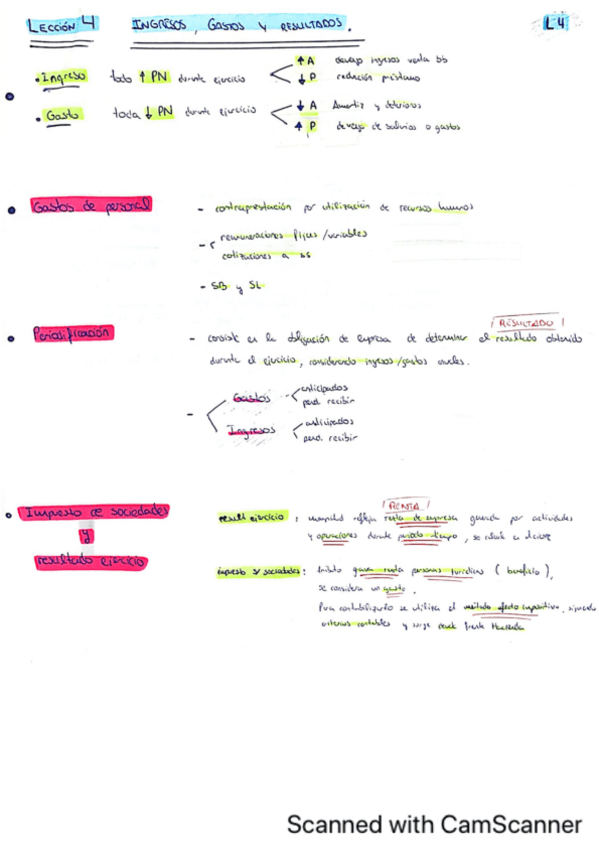 LECCIÓN 4 INGRESOS, GASTOS Y RESULTADOS. L4
• Ingreso todo ↑ PN durante ejercicio < ↑ A devengo ingresos venta bb
↓ P reducción préstamo
• Gasto toda ↓ PN durante ejercicio < ↓ A Amortiz y deterioros
↑ P devengo de salarios o gastos
• Gastos de personal - contraprestación por utilización de recursos humanos
- remuneraciones fijas / variables
cotizaciones a SS
- SB y SL
¡RESULTADO!
• Periodificación - consiste en la obligación de empresa de determinar el resultado obtenido
durante el ejercicio, considerando ingresos/gastos
- < Gastos < anticipados
pend. recibir
Ingresos < anticipados
pend. recibir
¡RENTA!
• Impuesto de sociedades
y
resultado ejercicio
result ejercicio: magnitud refleja renta de empresa generada por actividades
y operaciones durante periodo tiempo, se calcula en
impuesto s/ sociedades: tributo grava renta personas jurídicas (beneficio),
se considera un gasto.
Para contabilizarlo se utiliza el método efecto impositivo, siguiendo
criterios contables y surge deuda frente Hacienda
Scanned with CamScanner